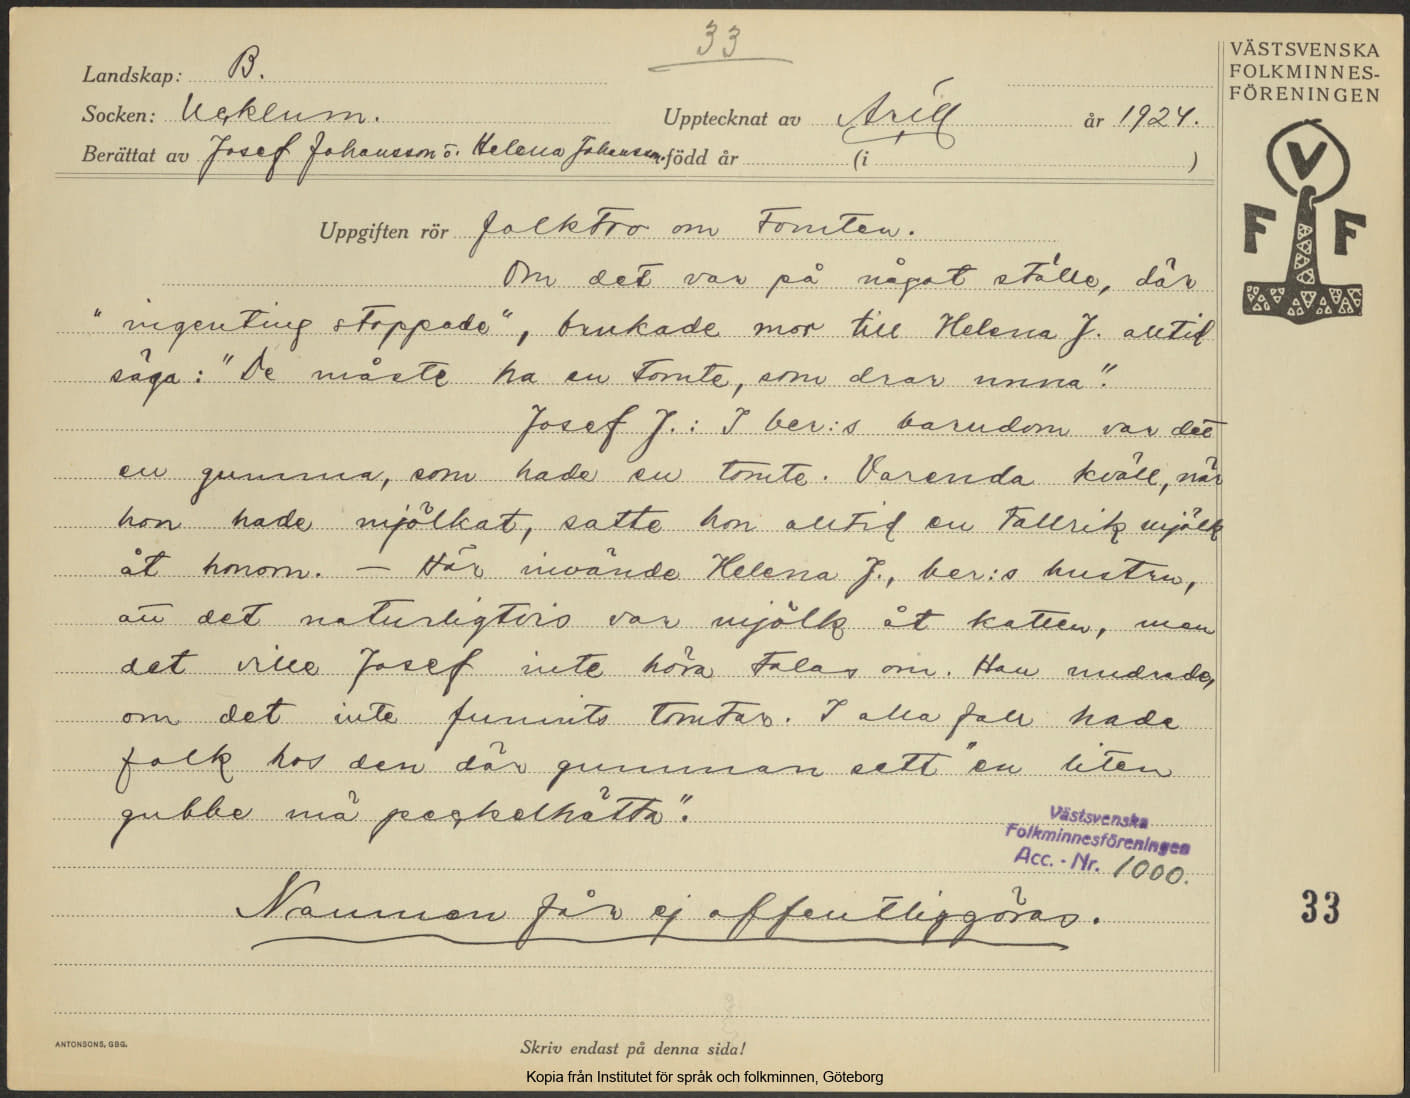 33
Landskap: B.
Socken: Ucklum.
Upptecknat av Arill år 1924.
Berättat av Josef Johansson o. Helena Johansson. född år (i )
VÄSTSVENSKA
FOLKMINNES-
FÖRENINGEN
V
F F
Uppgiften rör folktro om tomten.
Om det var på något ställe, där
"ingenting stoppade", brukade mor till Helena J. alltid
säga: "De måste ha en tomte, som drar unna".
Josef J.: I ber:s barndom var det
en gumma, som hade en tomte. Varenda kväll, när
hon hade mjölkat, satte hon alltid en tallrik mjölk
åt honom. — Här invände Helena J., ber:s hustru,
att det naturligtvis var mjölk åt katten, men
det ville Josef inte höra talas om. Han undrade,
om det inte funnits tomtar. I alla fall hade
folk hos den där gumman sett "en liten
gubbe mä peckelhätta".
Västsvenska
Folkminnesföreningen
Acc. - Nr. 1000.
Namnen får ej offentliggöras.
33
ANTONSONS, GBG.
Skriv endast på denna sida!
Kopia från Institutet för språk och folkminnen, Göteborg